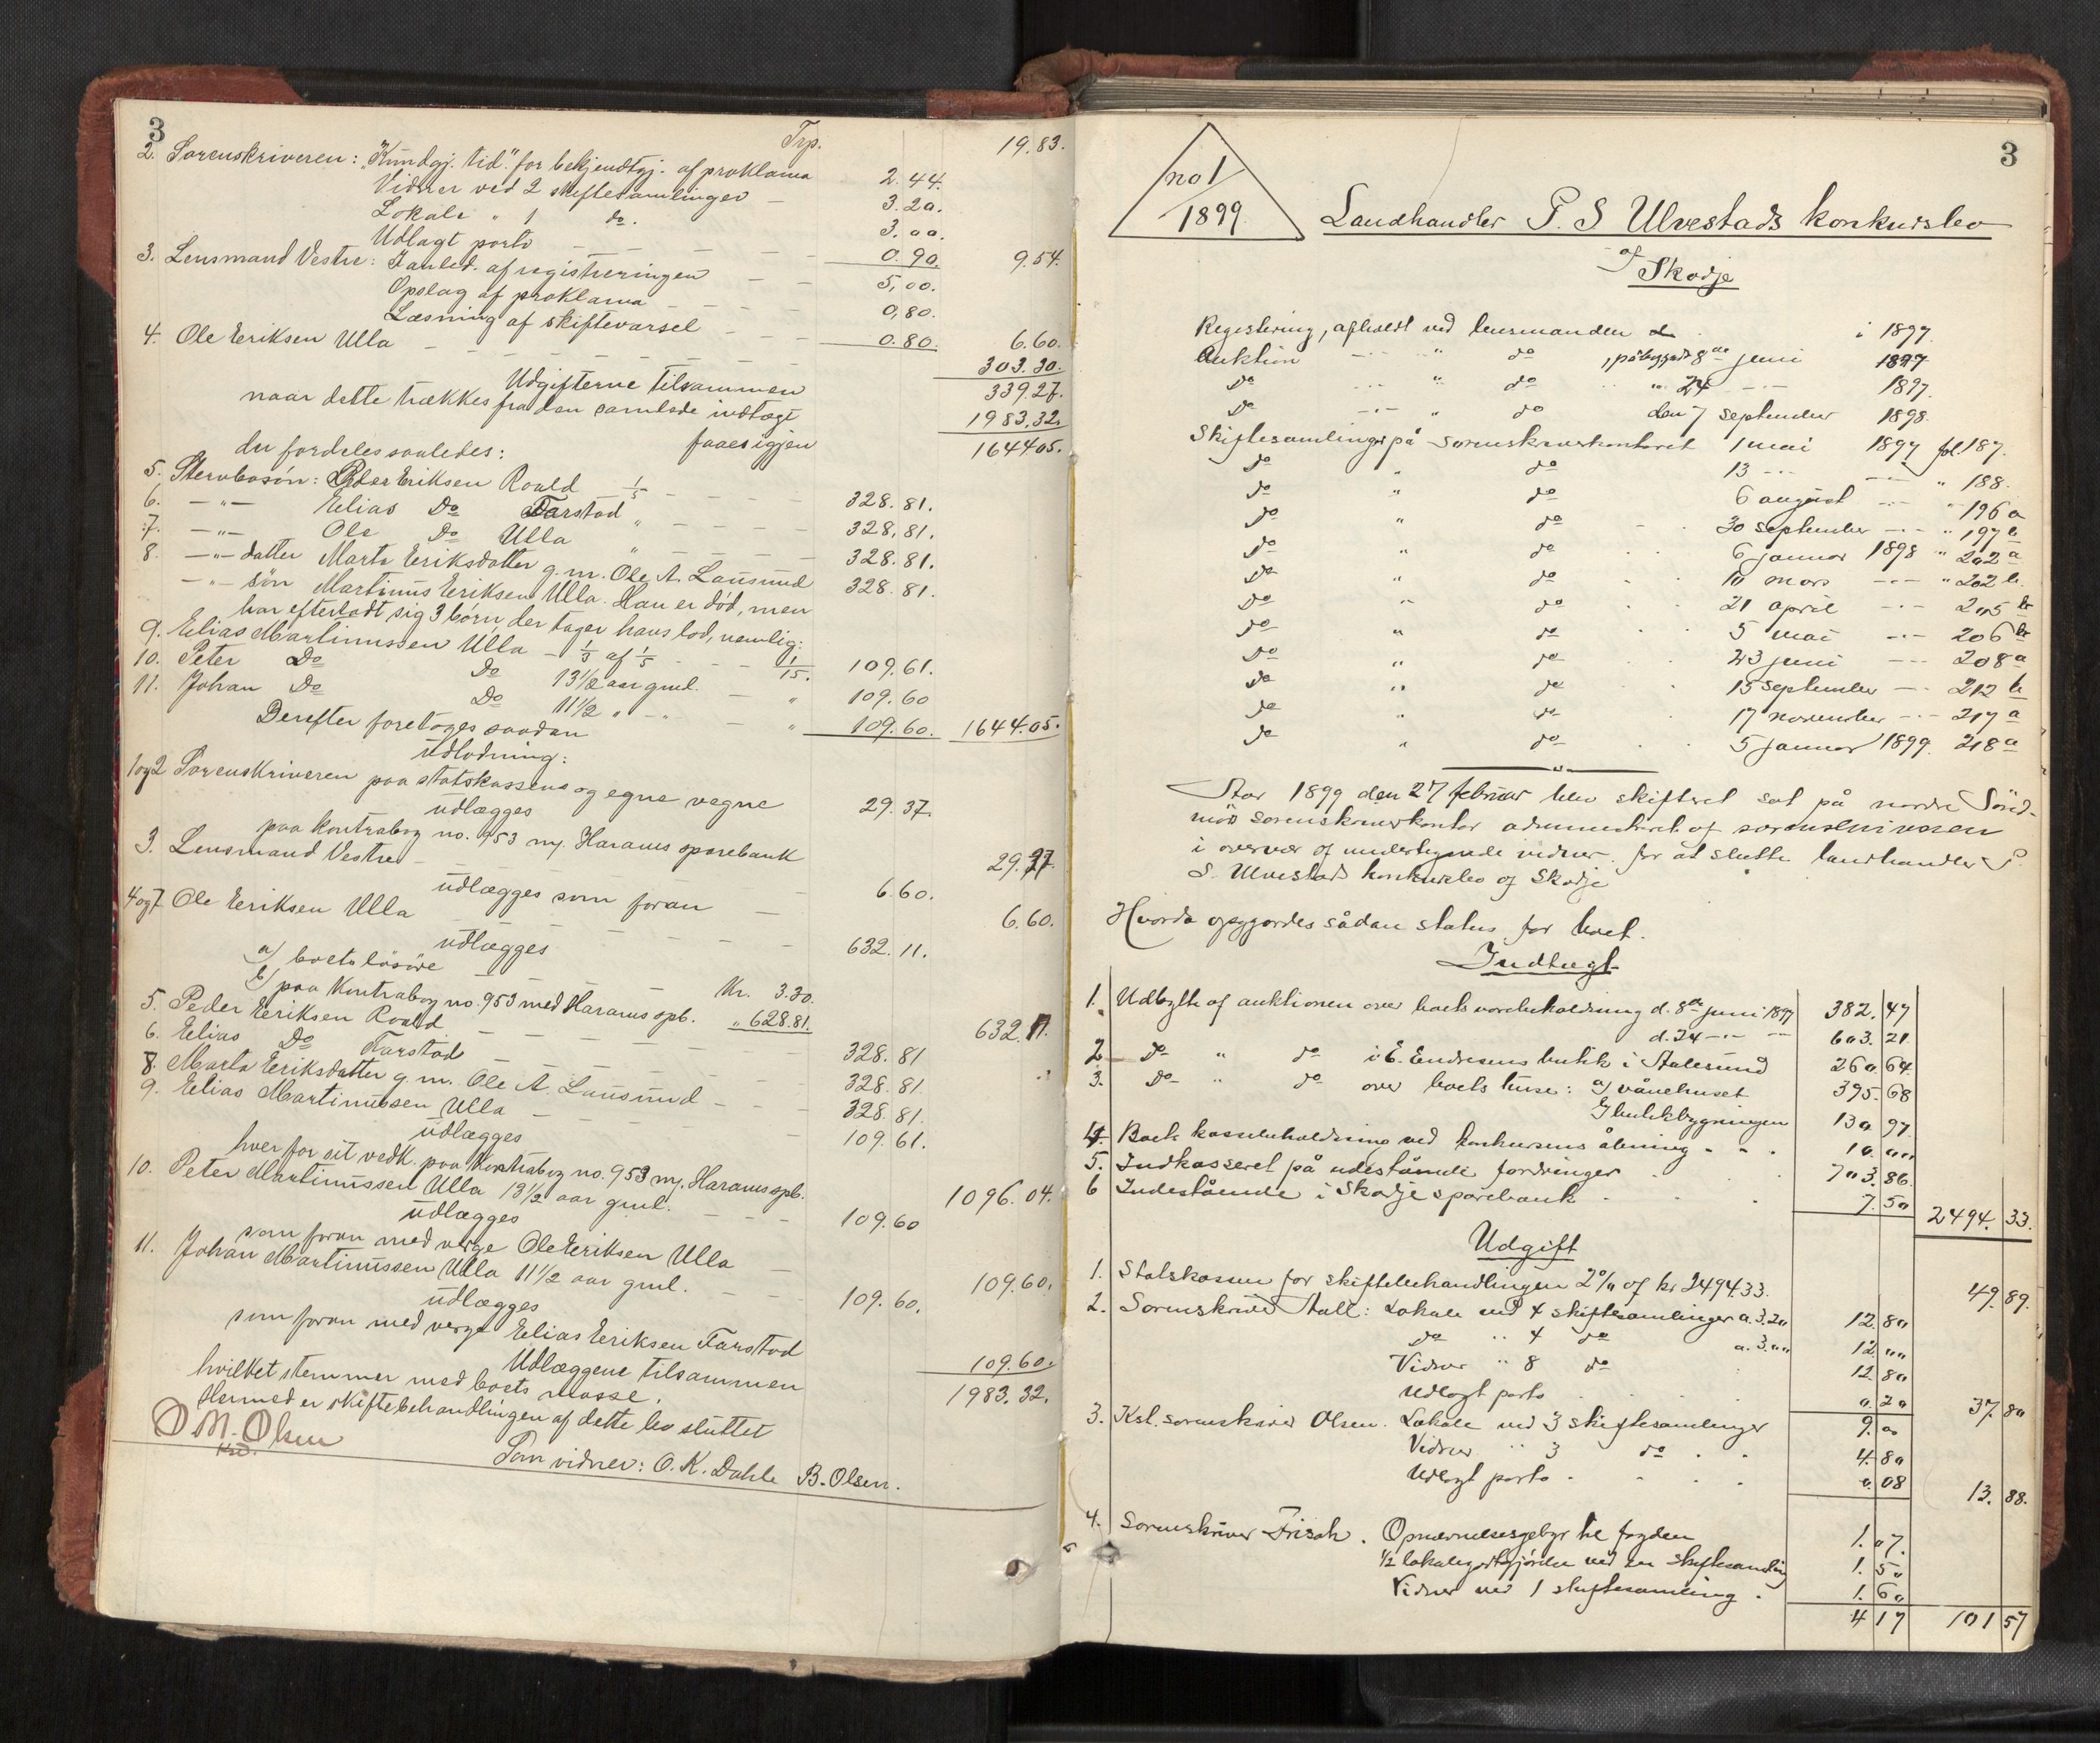 3
Trp. 19.83.
2. Sorenskriveren: "Kundgj. tid." for bekjendtgj. af proklama 2.44.
Vidner ved 2 skiftesamlinger — 3.20.
Lokale " 1 do. 3.00.
Udlagt porto — — — — 0.90. 9.54.
3. Lensmand Vestre: I anled. af registreringen — — 5,00.
Opslag af proklama — — — 0,80.
Læsning af skiftevarsel — — — 0.80. 6.60.
4. Ole Eriksen Ulla — — — — — — 303.30.
Udgifterne tilsammen 339.27.
naar dette trækkes fra den samlede indtægt 1983.32.
faaes igjen 1644.05.
der fordeles saaledes:
5. Stervbosøn: Peder Eriksen Roald 1/5 — — — — 328.81.
6. —"— Elias Do Farstad " — — — — 328,81.
7. —"— Ole Do Ulla " — — — — 328.81.
8. —"— datter Marta Eriksdatter g.m. Ole A. Lausund 328.81.
—"— søn Martinus Eriksen Ulla. Han er død, men
har efterladt sig 3 børn, der tager hans lod, nemlig:
9. Elias Martinussen Ulla — 1/3 af 1/5 — — 1/15. 109.61.
10. Peter Do Do 13 1/2 aar gml. — " 109.60
11. Johan Do Do 11 1/2 " —" — " 109.60. 1644.05.
Derefter foretoges saadan
udlodning:
1 og 2 Sorenskriveren paa statskassens og egne vegne 29.37.
udlægges
paa kontrabog no. 953 m/ Harams sparebank 29.37.
3. Lensmand Vestre — — — — 6.60.
udlægges som foran — 6.60.
4 og 7 Ole Eriksen Ulla — — — — — 632.11.
udlægges
a/ boets løsøre — — — Kr. 3.30.
b/ paa kontrabog no. 953 med Harams spb. " 628.81. 632.11.
5. Peder Eriksen Roald — — — — — 328.81
6. Elias Do Farstad — — — — — 328.81
8. Marta Eriksdatter g.m. Ole A. Lausund — — — 328.81.
9. Elias Martinussen Ulla — — — — 109.61.
udlægges
hver for sit vedk. paa kontrabog no. 953 m/ Harams spb. 1096.04.
10. Peter Martinussen Ulla 13 1/2 aar gml. — — — 109.60
udlægges
som foran med verge Ole Eriksen Ulla — 109.60.
11. Johan Martinussen Ulla 11 1/2 aar gml. — — — 109.60.
udlægges
som foran med verge Elias Eriksen Farstad 109.60.
Udlæggene tilsammen 1983.32.
hvilket stemmer med boets masse.
Hermed er skiftebehandlingen af dette bo sluttet
O M. Olsen
kst.
Som vidner: O. K. Dahle B. Olsen.
3
no 1
1899
Landhandler P. S Ulvestads konkursbo
af Skodje
Registering, afholdt ved lensmanden d. i 1897.
Auktion —"— " do , påbegyndt 8de juni 1897.
do —"— " do " 24 —"— 1897.
do —"— " do den 7 september 1898.
Skiftesamlinger på sorenskriverkontoret 1 mai 1897 fol 187.
do " do 13 —"— —"— " 188.
do " do 6 august —"— " 196 a
do " do 30 september —"— " 197 b
do " do 6 januar 1898 " 202 a
do " do 10 mars —"— " 202 b.
do " do 21 april —"— 205 b
do " do 5 mai —"— 206 b
do " do 23 juni —"— 208 a
do " do 15 september —"— 212 b
do " do 17 november —"— 217 a
do " do 5 januar 1899. 218 a
Aar 1899 den 27 februar blev skifteret sat på nordre Sönd-
mörs sorenskriverkontor administreret af sorenskriveren
i overvær af undertegnede vidner for at slutte landhandler P.
S. Ulvestads konkursbo af Skodje
Hvorda opgjordes sådan status for boet.
Indtægt
1. Udbytte af auktionen over boets varebeholdning d. 8de juni 1897 382.47
d. 24 —"— —"— 603.21
2. do " do i E. Endresens butik i Aalesund 260.64
3. do " do over boets huse: a) vånehuset 395.68
b) butikbygningen 130.97
4. Boets kassebeholdning ved konkursens åbning . . . 10.00
5. Indkasseret på udestående fordringer . . . 703.86.
6 Indestående i Skodje sparebank . . . 7.50 2494.33.
Udgift
1. Statskassen for skiftebehandlingen 2% af kr 2494.33. 49.89.
2. Sorenskriver Aall: Lokale ved 4 skiftesamlinger a. 3.20 12.80
do " 4 do a. 3.00 12.00
Vidner " 8 do 12.80
Udlagt porto . . . . 0.20 37.80
3. Kst. sorenskriver Olsen. Lokale ved 3 skiftesamlinger 9.00
Vidner " 3 do . . 4.80
Udlagt porto . . . . 0.08 13.88.
4. Sorenskriver Frisak. Opnævnelsesgebyr til fogden 1.07.
1/2 lokalegodtgjörelse ved en skiftesamling 1.50
Vidner ved 1 skiftesamling . 1.60
4 17 101 57